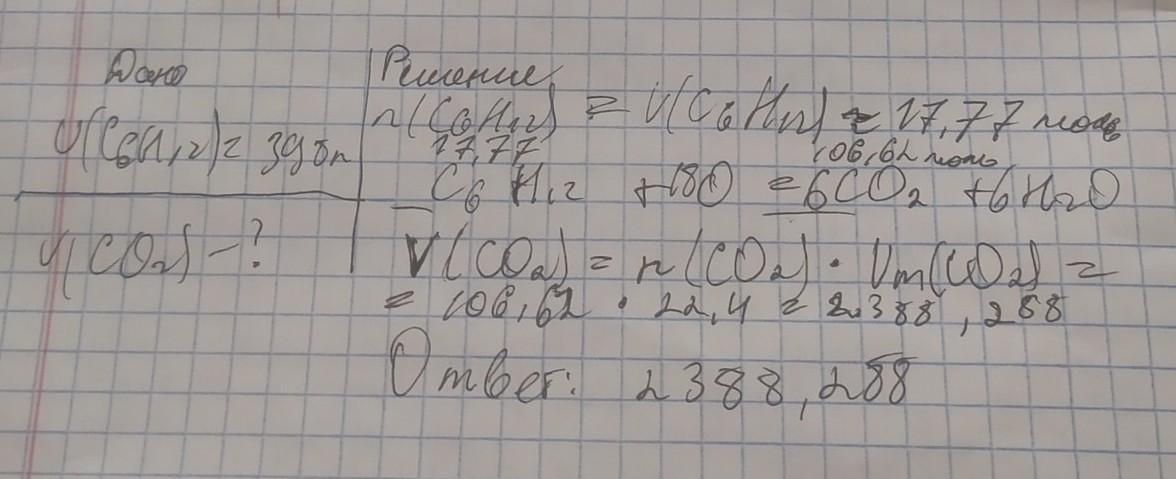 Дано
V(C6H12) = 398л
V(CO2) - ?
Решение
n(C6H12) = V(C6H12) = 17,77 моль
17,77 106,62 моль
C6H12 + 18O = 6CO2 + 6H2O
V(CO2) = n(CO2) · Vm(CO2) =
= 106,62 · 22,4 = 2388,288
Ответ: 2388,288